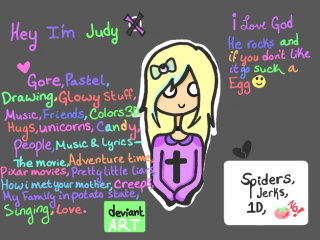 Hey I'm Judy
Gore, Pastel,
Drawing, Glowy Stuff,
Music, Friends, Colors 38
Hugs, unicorns, Candy,
People, Music & Lyrics-
The movie, Adventure time,
Pixar movies, Pretty little liars,
How i met your mother, Creeps,
My Family in potato state,
Singing, love.
deviant
ART
i Love God
He rocks and
if you don't like
it go suck a
Egg
Spiders,
Jerks,
1D,
No!